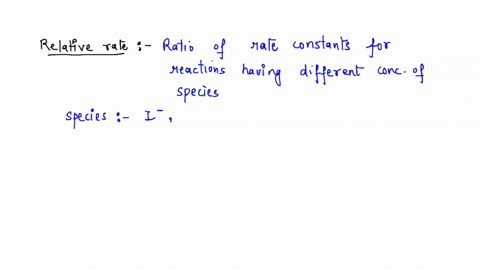 Relative rate :- Ratio of rate constants for
reactions having different conc. of
species
species :- I⁻,